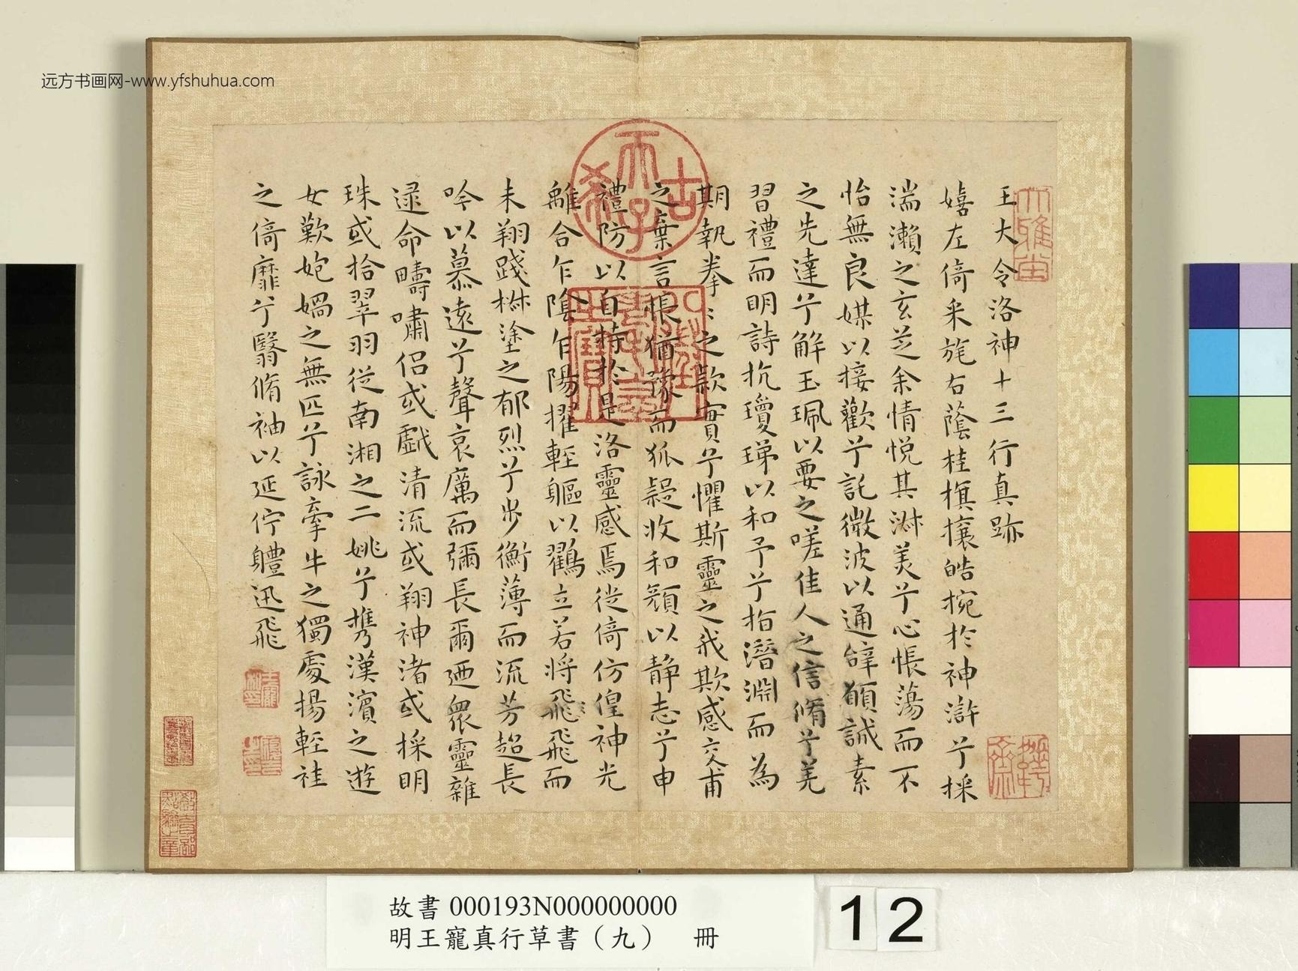 远方书画网-www.yfshuhua.com
王大令洛神十三行真跡
嬉左倚采旄右蔭桂旗攘皓捥於神滸兮採
湍瀨之玄芝余情悅其淑美兮心悵蕩而不
怡無良媒以接歡兮託微波以通辭願誠素
之先達兮解玉珮以要之嗟佳人之信脩兮羌
習禮而明詩抗瓊珶以和予兮指潛淵而為
期執拳〻之款實兮懼斯靈之我欺感交甫
之棄言悵猶豫而狐疑收和顏以静志兮申
禮防以自持於是洛靈感焉徙倚仿偟神光
離合乍陰乍陽擢輕軀以鶴立若將飛飛而
未翔踐椒塗之郁烈兮步衡薄而流芳超長
吟以慕遠兮聲哀厲而彌長爾迺衆靈雜
遝命疇嘯侶或戲清流或翔神渚或採明
珠或拾翠羽從南湘之二姚兮攜漢濱之遊
女歎匏媧之無匹兮詠牽牛之獨處揚輕袿
之倚靡兮翳脩袖以延佇軆迅飛
古稀天子
八徵耄念之寶
故書 000193N000000000
明王寵真行草書（九） 冊
12